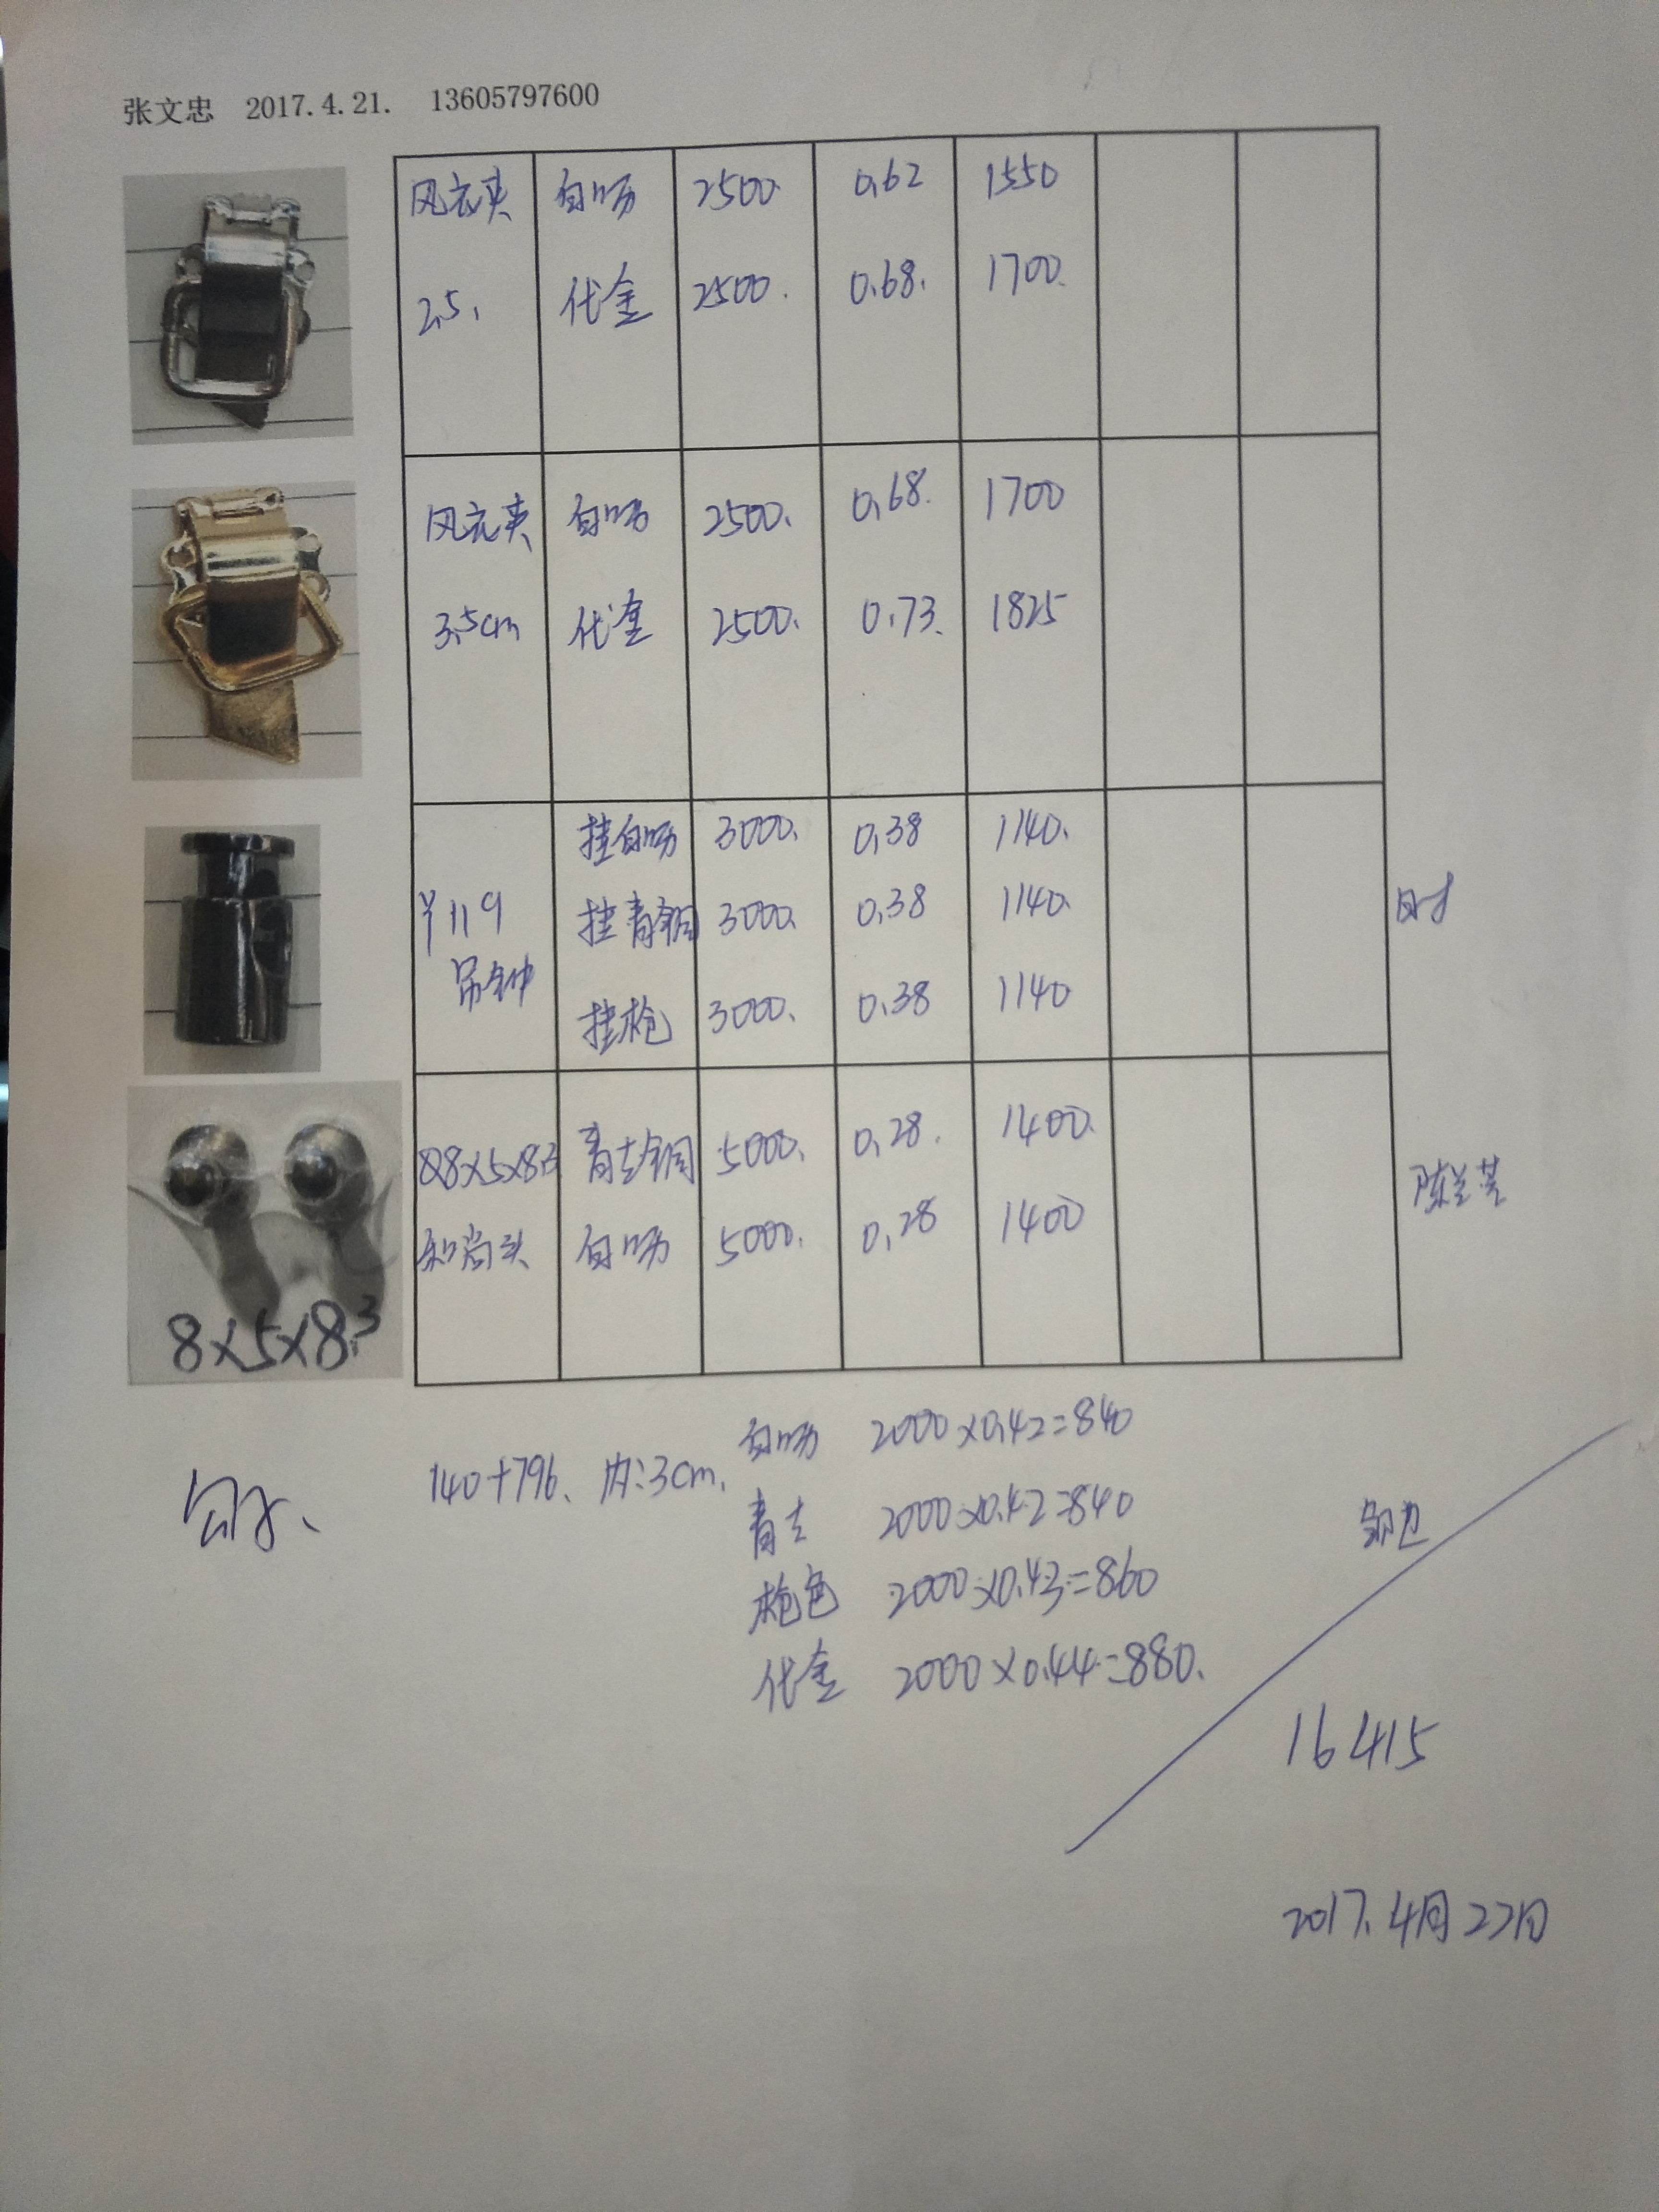 张文忠 2017.4.21. 13605797600
风衣夹 白叻 2500 0.62 1550
2.5. 代金 2500. 0.68. 1700.
风衣夹 白叻 2500. 0.68. 1700
3.5cm 代金 2500. 0.73. 1825
挂白叻 3000. 0.38 1140.
119 挂青铜 3000. 0.38 1140.
吊钟
挂枪 3000. 0.38 1140
8x5x8.3 青古铜 5000. 0.28. 1400.
和尚头 白叻 5000. 0.28 1400
8x5x8.3
白叻 2000x0.42=840
140+796、内:3cm.
青古 2000x0.42=840
枪色 2000x0.43=860
代金 2000x0.44=880.
16415
2017.4月22日